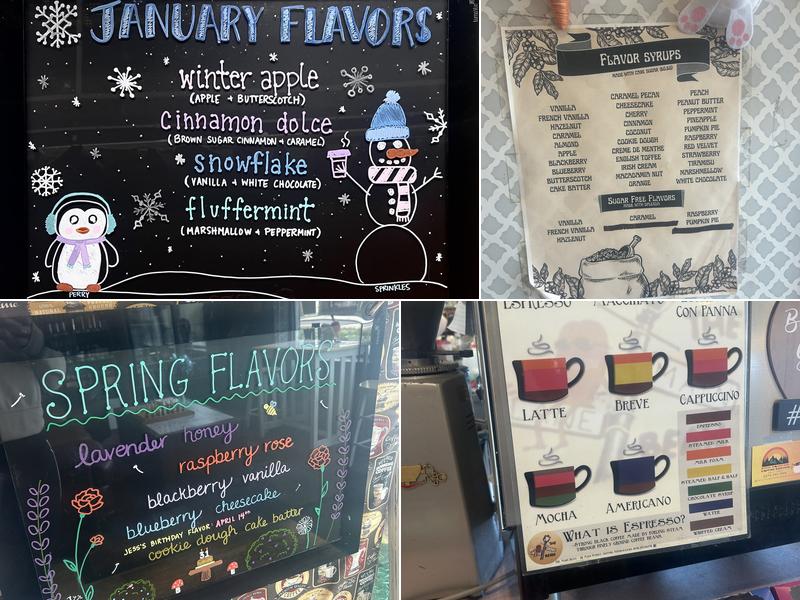 JANUARY FLAVORS
winter apple
(APPLE + BUTTERSCOTCH)
Cinnamon dolce
(BROWN SUGAR CINNAMON + CARAMEL)
snowflake
(VANILLA + WHITE CHOCOLATE)
fluffermint
(MARSHMALLOW + PEPPERMINT)
PERRY
SPRINKLES
FLAVOR SYRUPS
MADE WITH CANE SUGAR
VANILLA
FRENCH VANILLA
HAZELNUT
CARAMEL
ALMOND
APPLE
BLACKBERRY
BLUEBERRY
BUTTERSCOTCH
CAKE BATTER
CARAMEL PECAN
CHEESECAKE
CHERRY
CINNAMON
COCONUT
COOKIE DOUGH
CREME DE MENTHE
ENGLISH TOFFEE
IRISH CREAM
MACADAMIA NUT
ORANGE
PEACH
PEANUT BUTTER
PEPPERMINT
PINEAPPLE
PUMPKIN PIE
RASPBERRY
RED VELVET
STRAWBERRY
TIRAMISU
MARSHMALLOW
WHITE CHOCOLATE
SUGAR FREE FLAVORS
MADE WITH SPLENDA
VANILLA
FRENCH VANILLA
HAZLENUT
CARAMEL
RASPBERRY
PUMPKIN PIE
SPRING FLAVORS
lavender honey
raspberry rose
blackberry vanilla
blueberry cheesecake
JESS'S BIRTHDAY FLAVOR: APRIL 14TH
cookie dough cake batter
31
ESPRESSO
MACCHIATO
CON PANNA
LATTE
BREVE
CAPPUCCINO
MOCHA
AMERICANO
ESPRESSO
STEAMED MILK
MILK FOAM
STEAMED HALF & HALF
CHOCOLATE SYRUP
WATER
WHIPPED CREAM
WHAT IS ESPRESSO?
STRONG BLACK COFFEE MADE BY FORCING STEAM
THROUGH FINELY GROUND COFFEE BEANS.
#